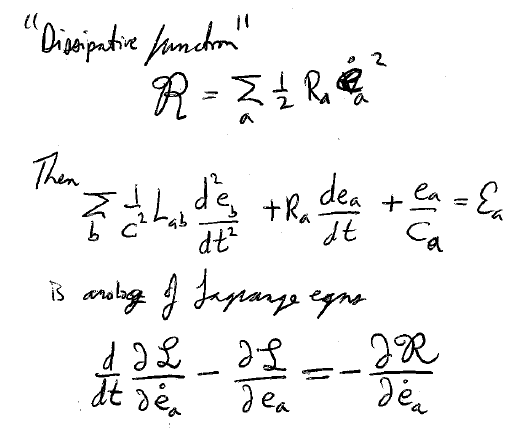 "Dissipative function"
ℛ = Σ_a ½ R_a ė_a²
Then
Σ_b 1/c² L_ab d²e_b/dt² + R_a de_a/dt + e_a/C_a = ℰ_a
is analog of Lagrange eqns
d/dt ∂ℒ/∂ė_a − ∂ℒ/∂e_a = − ∂ℛ/∂ė_a